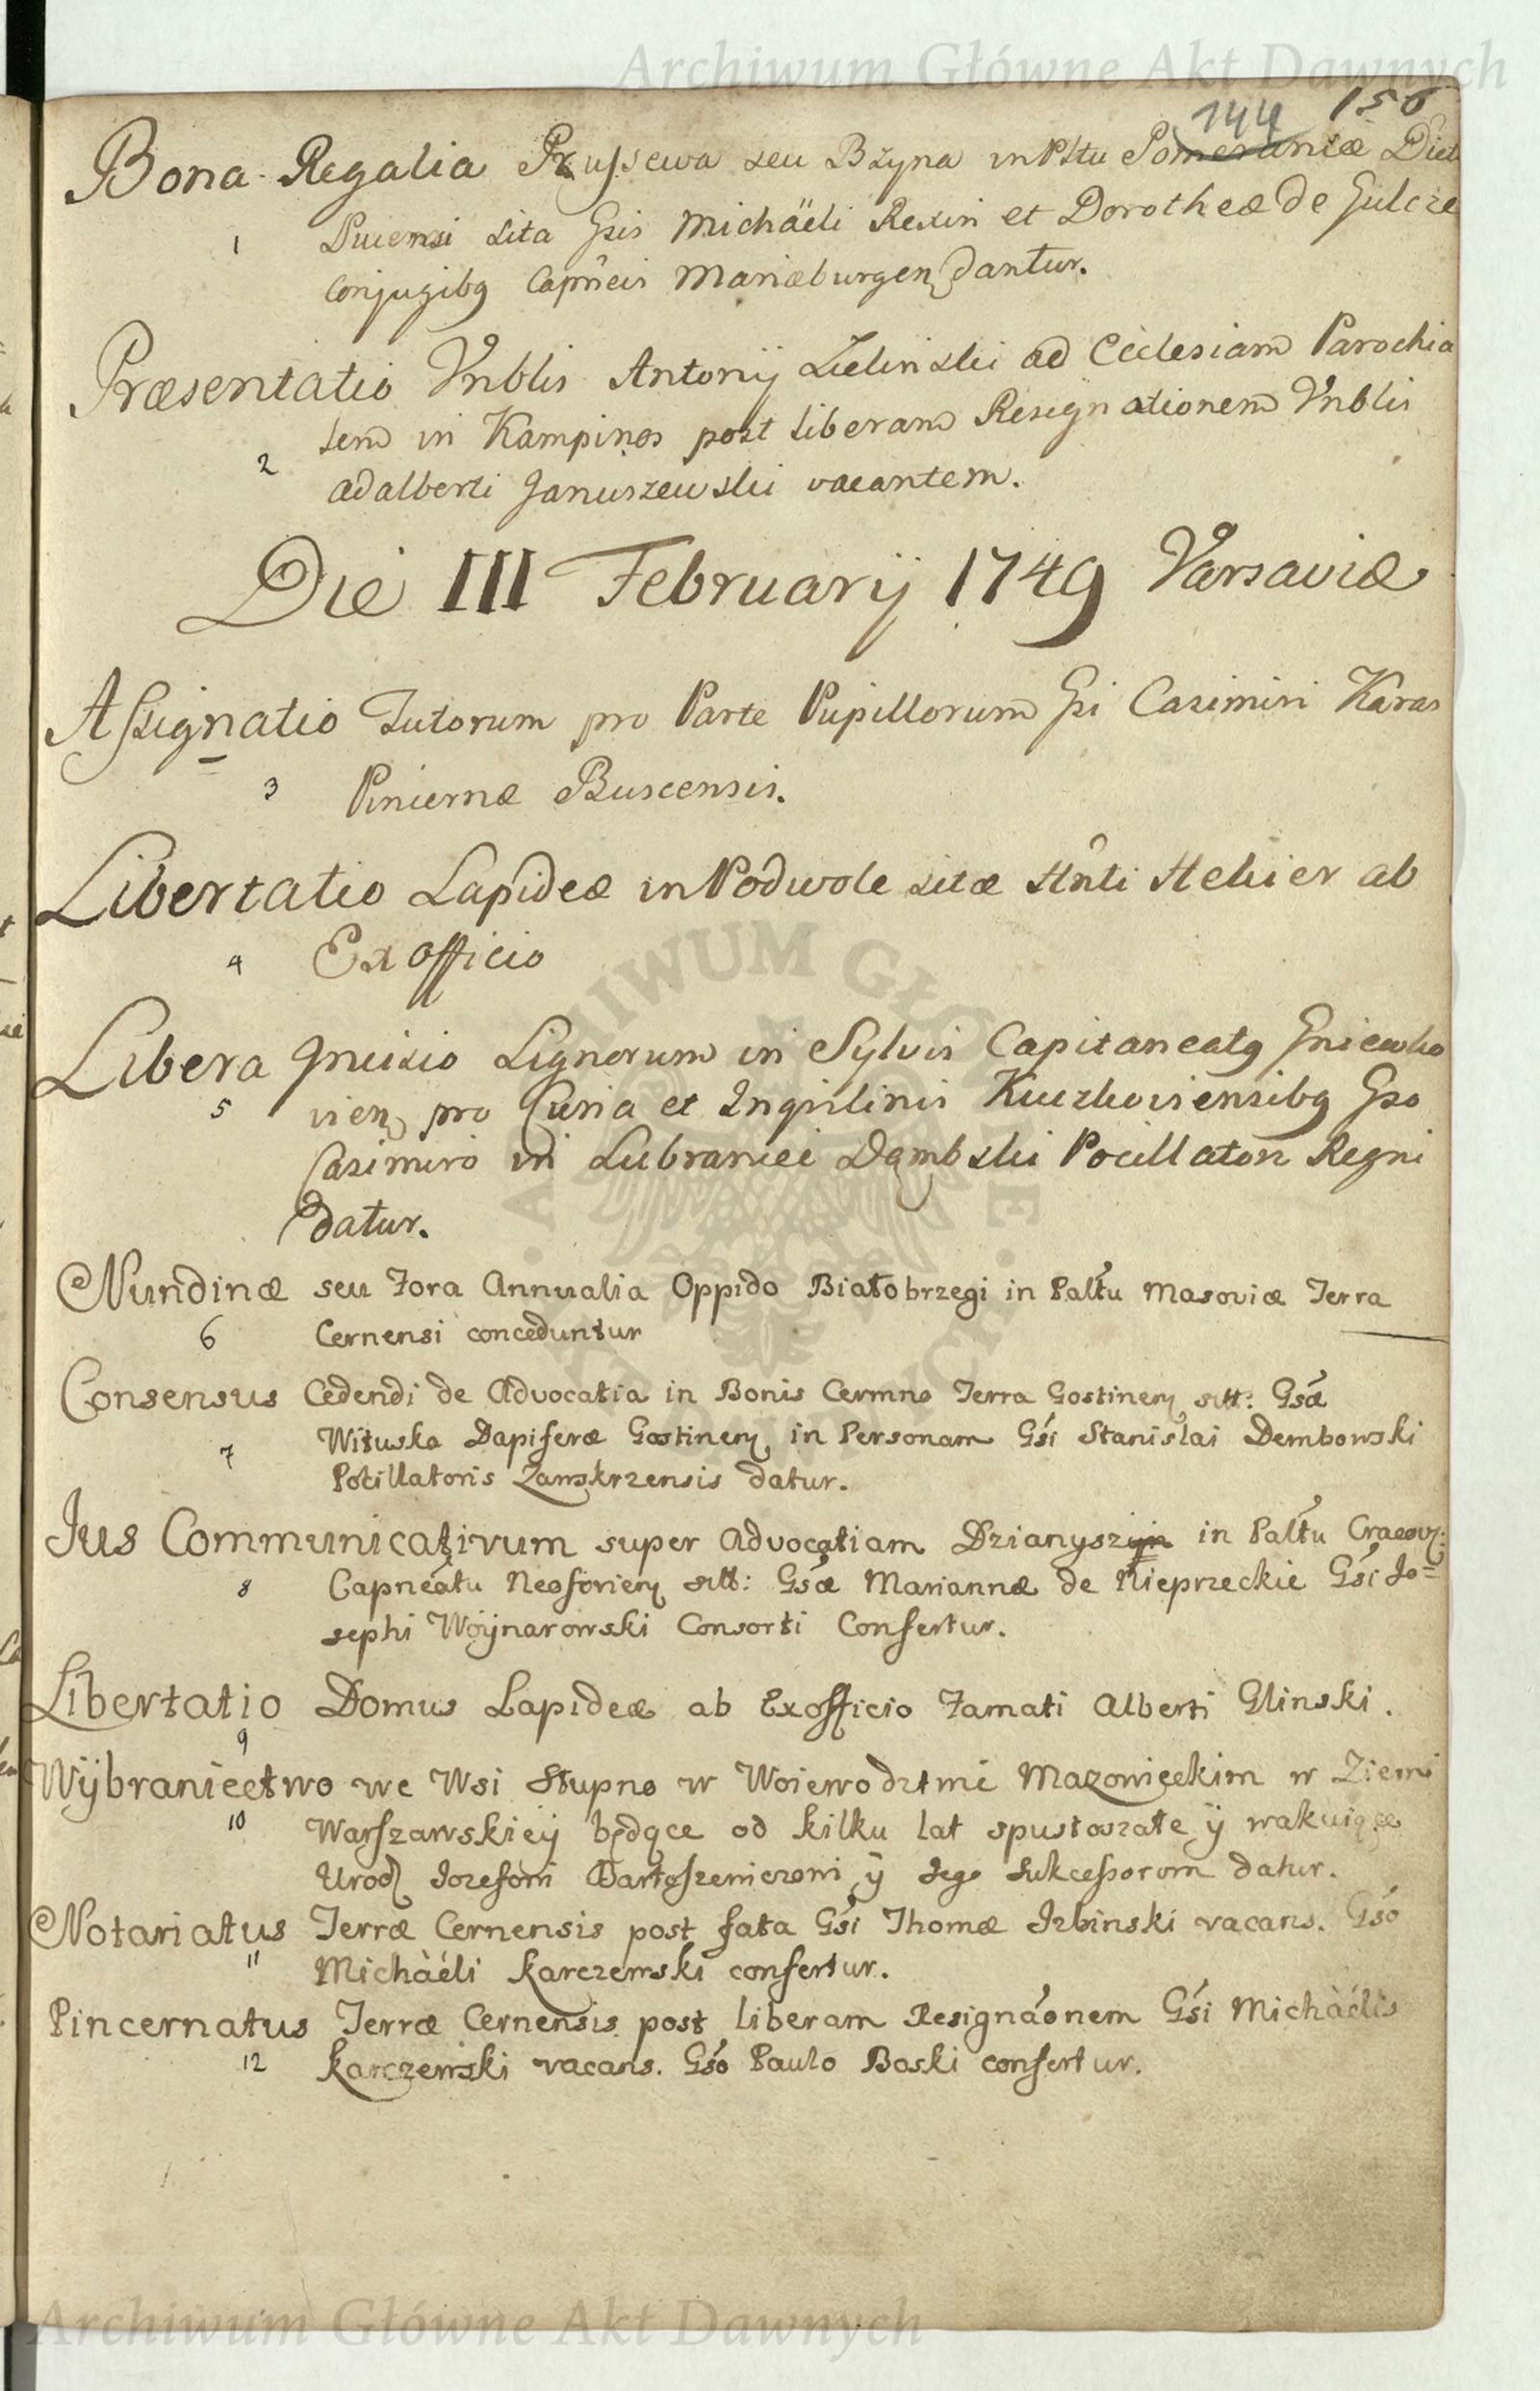 Archiwum Główne Akt Dawnych
144 156
Bona Regalia Prussewa seu Bzyna in Pltu Pomeraniæ
1 sita Gsis Michäeli Rexin et Dorotheæ de Gulcze
Conjugibq Capneis Mariæburgen dantur.
Præsentatio Vnblis Antonij Zielinski ad Ecclesiam Parochia
lem in Kampinos post liberam Resignationem Vnblis
2 adalberti Januszewski vacantem.
Die III Februarij 1749 Varsaviæ
Assignatio Tutorum pro Parte Pupillorum Gsi Casimiri Karas
3 Pincernæ Buscensis.
Libertatio Lapideæ in Podwole sitæ ab
4 Ex officio
Libera Inuisio Lignorum in Sylvis Capitaneatq Gniewko
5 vien pro Curia et Inqvilinis Gso
Casimiro in Lubraniec Dąmbski Pocillatori Regni
datur.
Nundinæ seu Fora Annualia Oppido Białobrzegi in Paltu Masoviæ Terra
6 Cernensi conceduntur
Consensus Cedendi de Advocatia in Bonis Cermno Terra Gostinen sitt: Gsæ
Wituska Dapiferæ Gostinen in Personam Gsi Stanislai Dembowski
7 Pocillatoris Zawskrzensis datur.
Jus Communicativum super Advocatiam in Paltu Cracov:
8 Capneatu Neoforien sitt: Gsæ Mariannæ de Nieprzeckie Gsi Jo=
sephi Woÿnarowski Consorti Confertur.
Libertatio Domus Lapideæ ab Exofficio Famati Alberti Glinski.
9
Wÿbraniectwo we Wsi Słupno w Woiewodztwie Mazowieckim w Ziemi
10 Warszawskieÿ będące od kilku lat spustoszałe ÿ wakuiące
Urod Jozefowi Bartoszewiczowi ÿ Jego Sukcessorom datur.
Notariatus Terræ Cernensis post fata Gsi Thomæ Izbinski vacans. Gso
11 Michàéli Karczewski confertur.
Pincernatus Terræ Cernensis post liberam Resignáonem Gsi Michàélis
12 Karczewski vacans. Gso Paulo Boski confertur.
Archiwum Główne Akt Dawnych